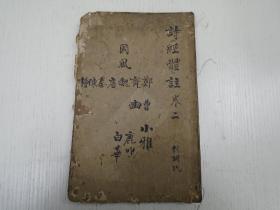 詩經體註 卷二
國風
鄭齊魏唐秦陳檜
曹豳
小雅
鹿鳴
白華